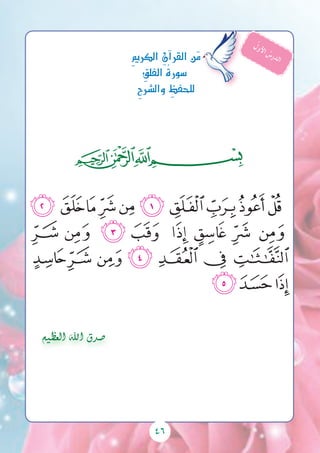 الدرس الأول
مِن القرآنِ الكريمِ
سورةُ الفلقِ
للحفظِ والشرحِ
بِسْمِ ٱللَّهِ ٱلرَّحْمَٰنِ ٱلرَّحِيمِ
قُلْ أَعُوذُ بِرَبِّ ٱلْفَلَقِ ١ مِن شَرِّ مَا خَلَقَ ٢
وَمِن شَرِّ غَاسِقٍ إِذَا وَقَبَ ٣ وَمِن شَرِّ
ٱلنَّفَّٰثَٰتِ فِى ٱلْعُقَدِ ٤ وَمِن شَرِّ حَاسِدٍ
إِذَا حَسَدَ ٥
صدق الله العظيم
٤٦